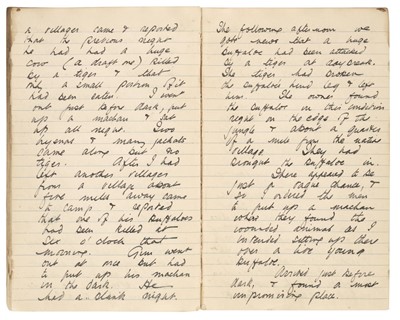 a villager came & reported
that the previous night
he had had a huge
cow (a draft one) killed
by a tiger & that
only a small portion of it
had been eaten. I went
out just before dark, put
up a machan & sat
up all night. Two
hyenas & many jackals
came along but no
tiger. After I had
left another villager
from a village about
five miles away came
to camp & reported
that one of his buffaloes
had been killed at
six o'clock that
morning. Gim went
out at once but had
to put up his machan
in the dark. He
had a blank night.
The following afternoon we
got news that a huge
buffaloe had been attacked
by a tiger at daybreak.
The tiger had broken
the buffaloes hind leg & left
him. The owner found
the buffaloe in this condition
right on the edge of the
jungle & about a quarter
of a mile from the native
village. They had
brought the buffaloe in
There appeared to be
just a vague chance, &
so I ordered the men
to put up a machan
where they found the
wounded animal as I
intended sitting up there
over live young
buffaloe.
Arrived just before
dark, & found a most
unpromising place.